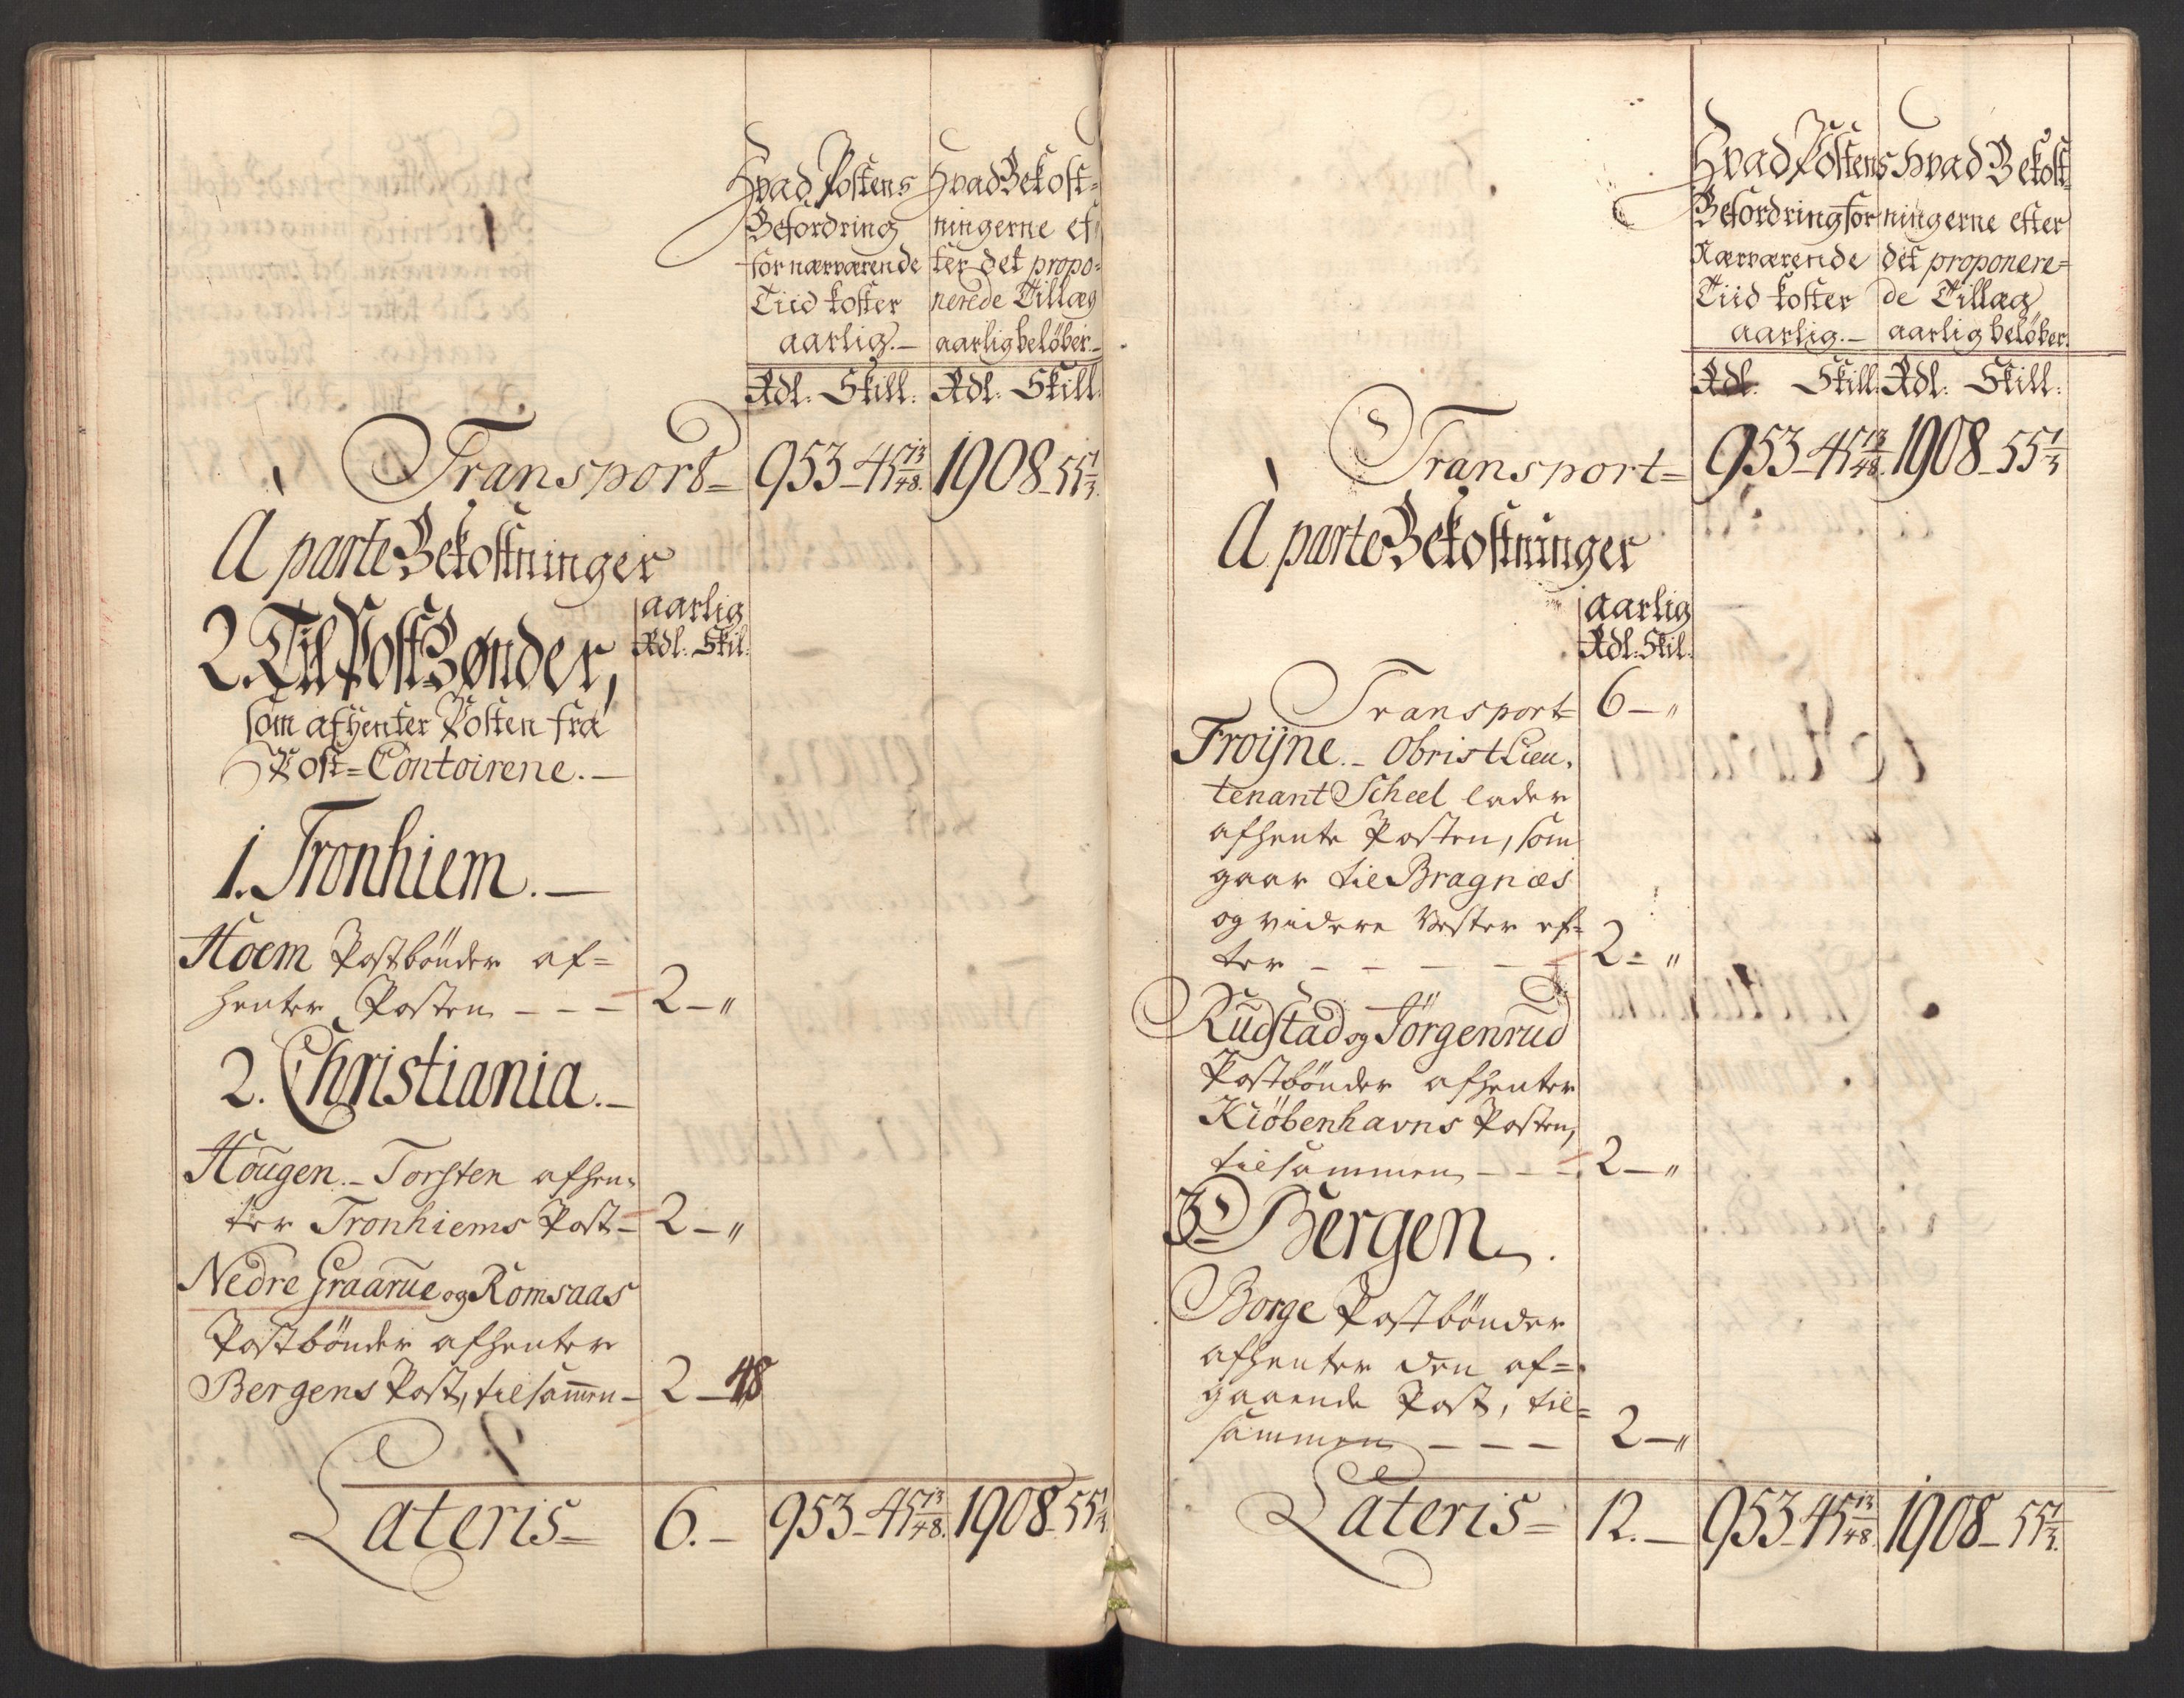 Hvad Postens
Befordring
for nærværende
Tiid koster
aarlig.—
Hvad Bekost=
ningerne ef=
ter det propo=
nerede Tillæg
aarlig beløber.—
Rdl: Skill: Rdl: Skill:
Transport= 953-45 13/48. 1908-55 1/3.
À parte Bekostninger
aarlig
2. Til Post Bønder, Rdl: Skil:
som afhenter Posten fra
Post=Contoirene.—
1. Tronhiem.—
Hoem Postbönder af=
henter Posten - - - 2-"
2. Christiania.—
Hougen.- Torsten afhen=
ter Tronhiems Post- 2-"
Nedre Graarue og Romsaas
Postbönder afhenter
Bergens Post, tilsammen- 2-48
Lateris= 6.- 953-45 13/48. 1908-55 1/3.
Hvad Postens
Befordring for
Nærværende
Tiid koster
aarlig.—
Hvad Bekost=
ningerne efter
det proponere=
de Tillæg
aarlig beløber.
Rdl. Skill: Rdl: Skill:
Transport= 953-45 13/48. 1908-55 1/3
À parte Bekostninger
aarlig
Rdl: Skil:
Transport= 6-"
Froijne.- Obrist Lieu=
tenant Scheel lader
afhente Posten, som
gaar til Bragnæs
og videre Vester ef=
ter - - - - - 2-"
Rudstad og Jörgenrud
Postbönder afhenter
Kiöbenhavns Posten,
tilsammen - - - 2-"
3. Bergen.
Borge Postbönder
afhenter den af=
gaaende Post, til=
sammen - - - 2-"
Lateris= 12.- 953-45 13/48. 1908-55 1/3.